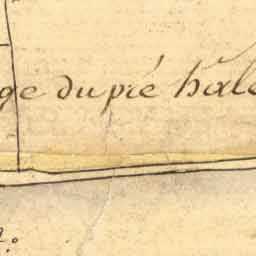 ge du pré hale